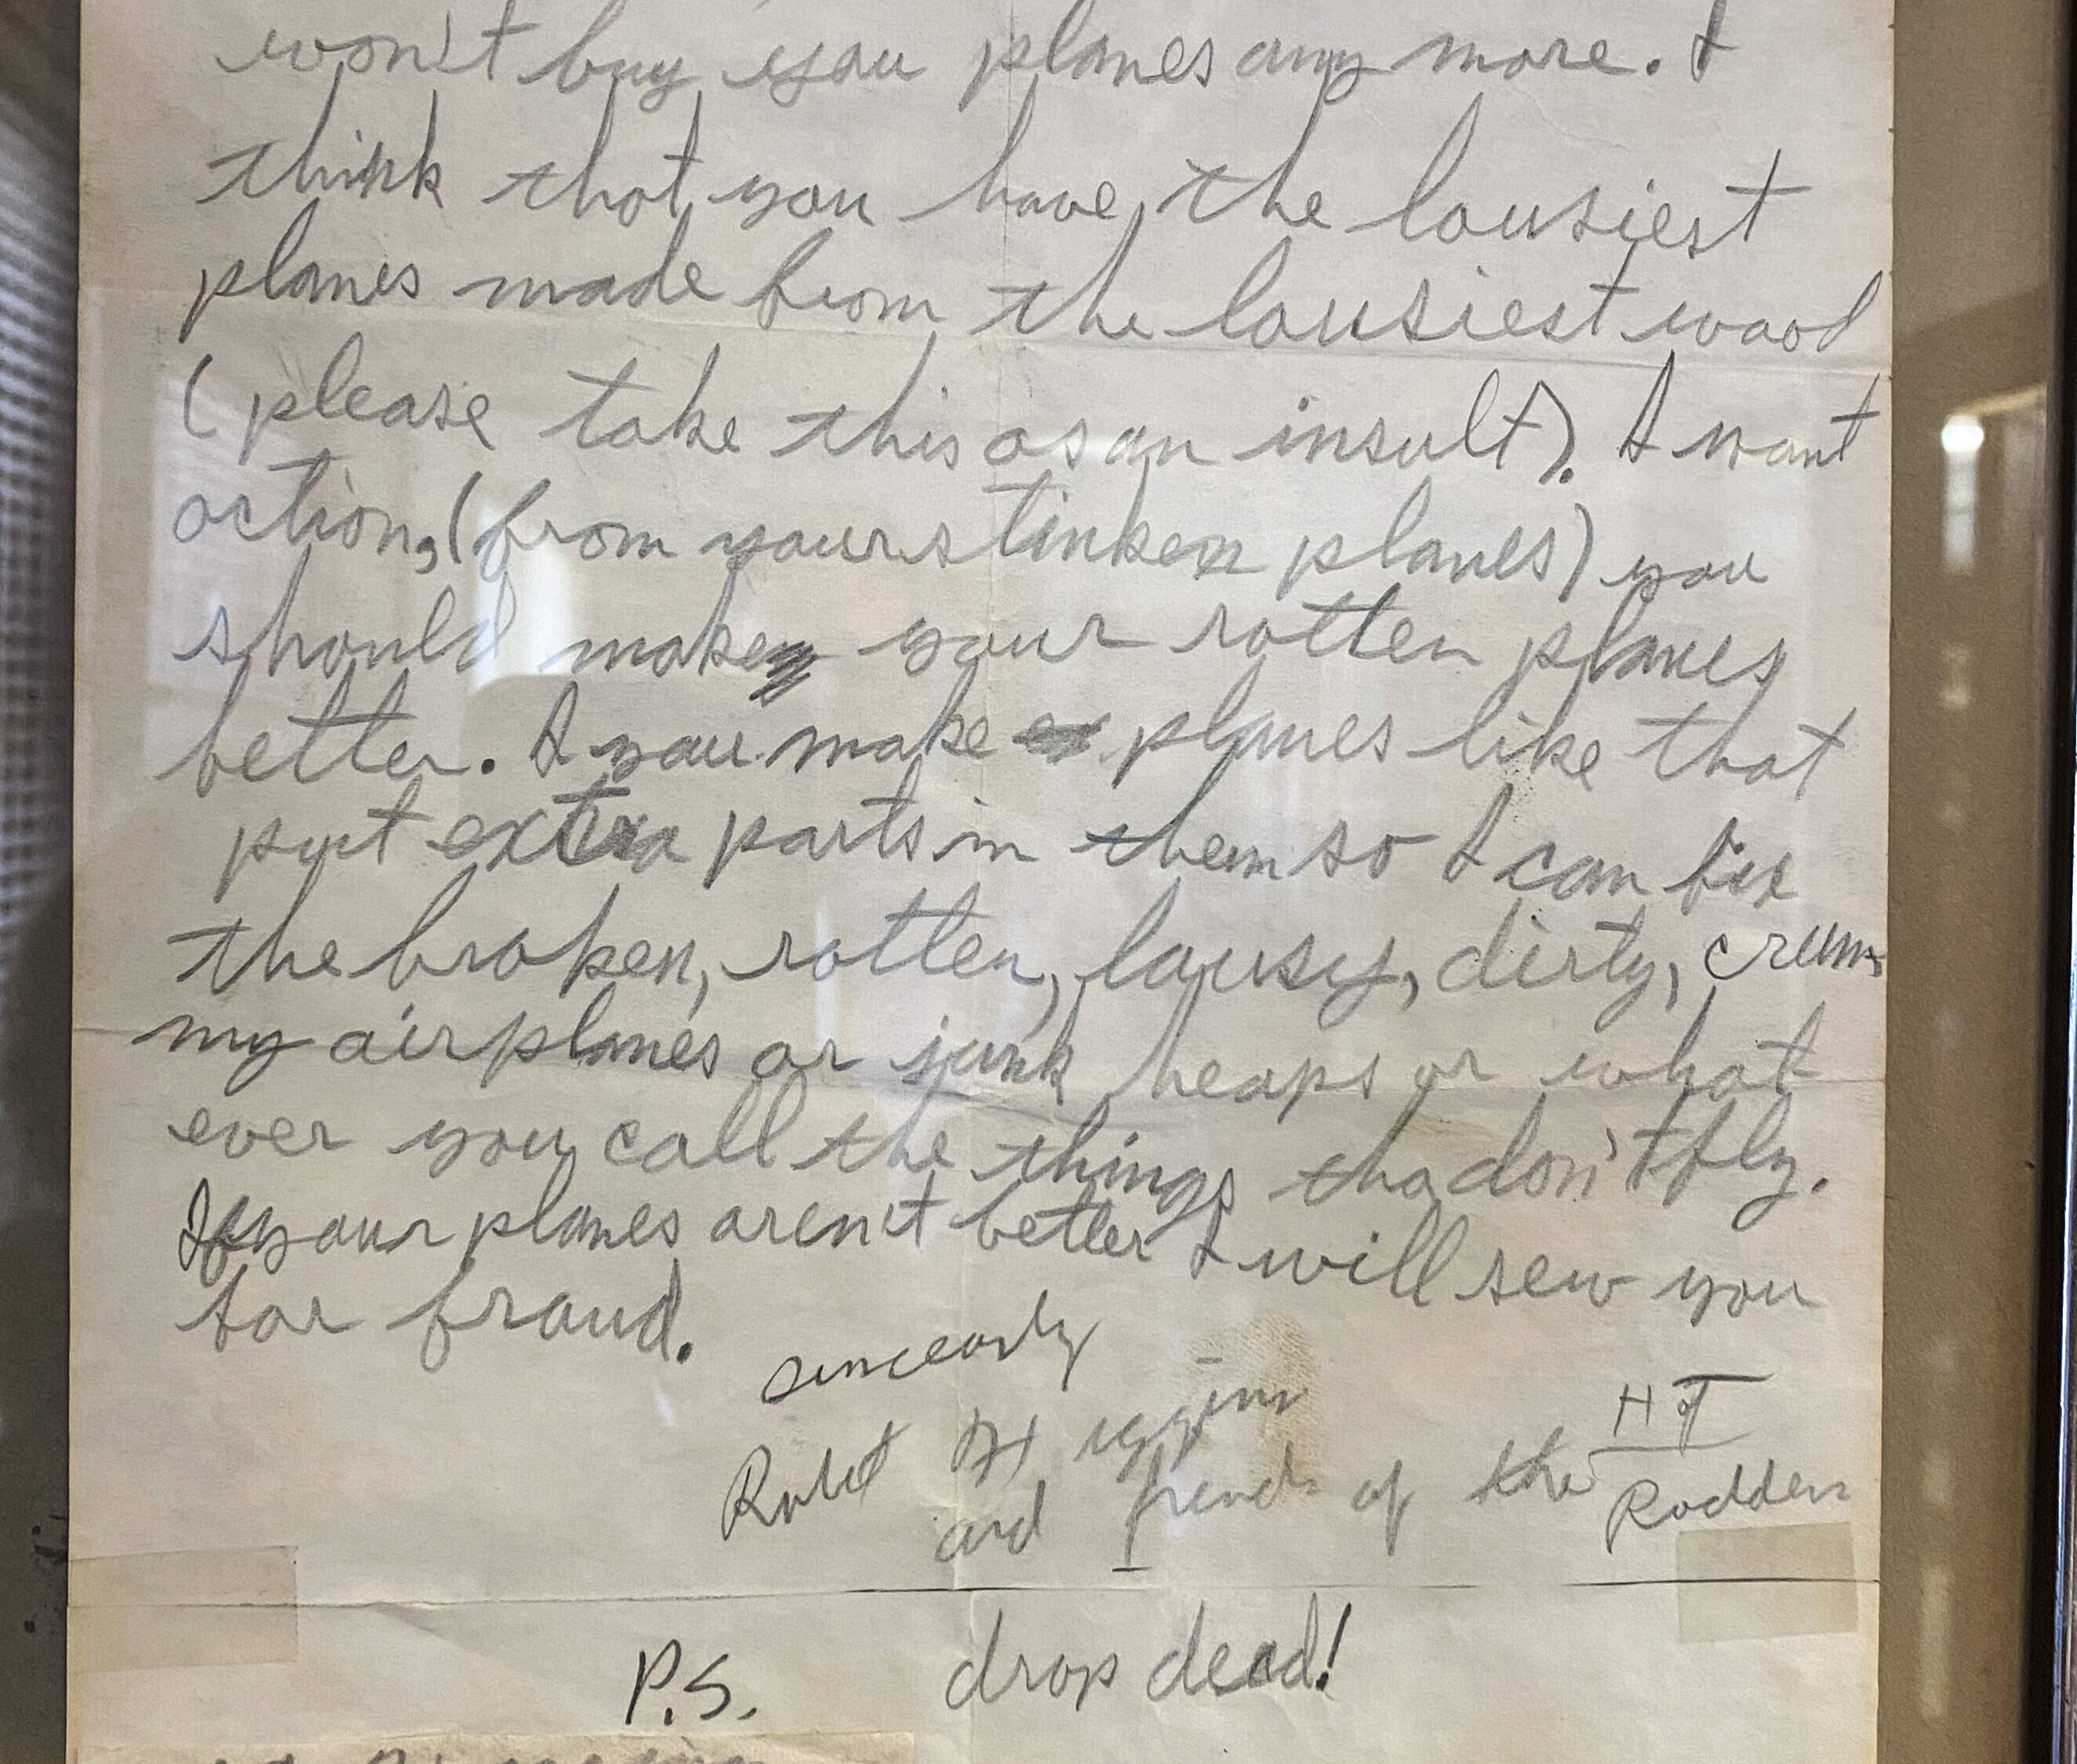 won't buy you planes any more. I
think that you have the lousiest
planes made from the lousiest wood
(please take this as an insult). I want
action, (from your stinken planes) you
should make your rotten planes
better. I you make planes like that
put extra parts in them so I can fix
the broken, rotten, lousy, dirty, crum-
my airplanes or junk heaps or what
ever you call the things tha don't fly.
If your planes aren't better I will sew you
for fraud.
sincearly
Robert H
and friends of the HJ
Rodders
P.S. drop dead!